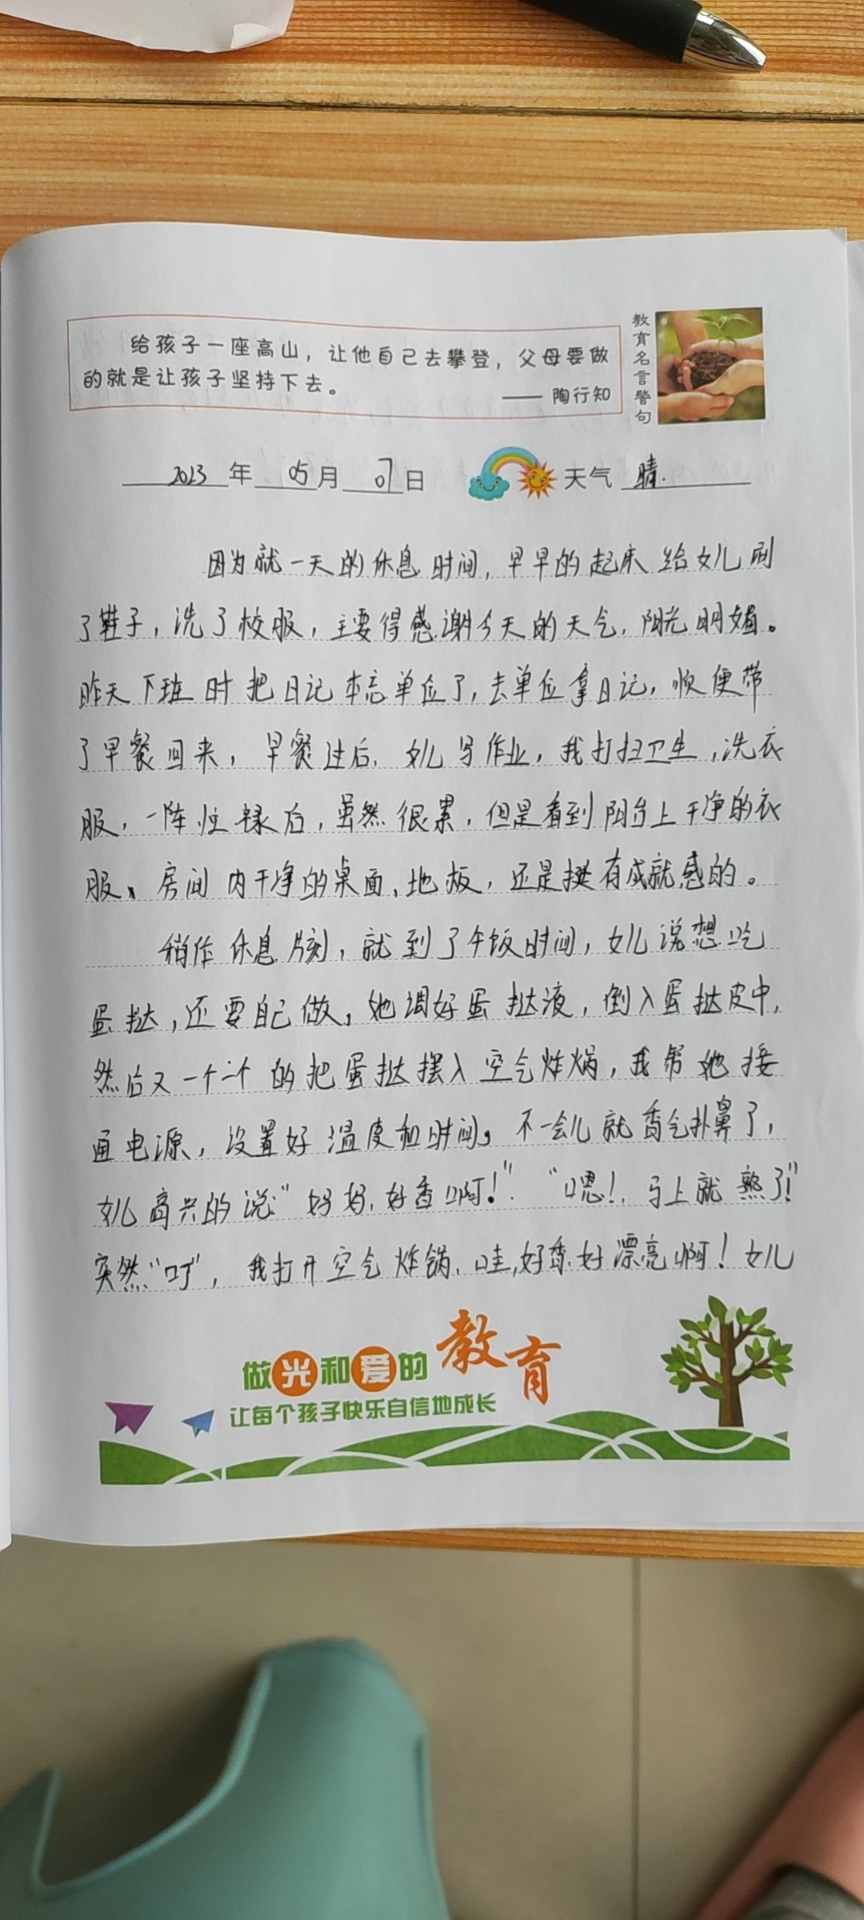 给孩子一座高山，让他自己去攀登，父母要做
的就是让孩子坚持下去。
—— 陶行知
教育名言警句
2023年05月07日 天气 晴.
因为就一天的休息时间，早早的起床给女儿刷
了鞋子，洗了校服，主要得感谢今天的天气，阳光明媚。
昨天下班时把日记本忘单位了，去单位拿日记，顺便带
了早餐回来，早餐过后，女儿写作业，我打扫卫生，洗衣
服，一阵忙碌后，虽然很累，但是看到阳台上干净的衣
服、房间内干净的桌面、地板，还是挺有成就感的。
稍作休息片刻，就到了午饭时间，女儿说想吃
蛋挞，还要自己做，她调好蛋挞液，倒入蛋挞皮中，
然后又一个一个的把蛋挞摆入空气炸锅，我帮她接
通电源，设置好温度和时间，不一会儿就香气扑鼻了，
女儿高兴的说：“妈妈，好香啊！”，“嗯！，马上就熟了！”
突然“叮”，我打开空气炸锅，哇，好香好漂亮啊！女儿
做光和爱的教育
让每个孩子快乐自信地成长